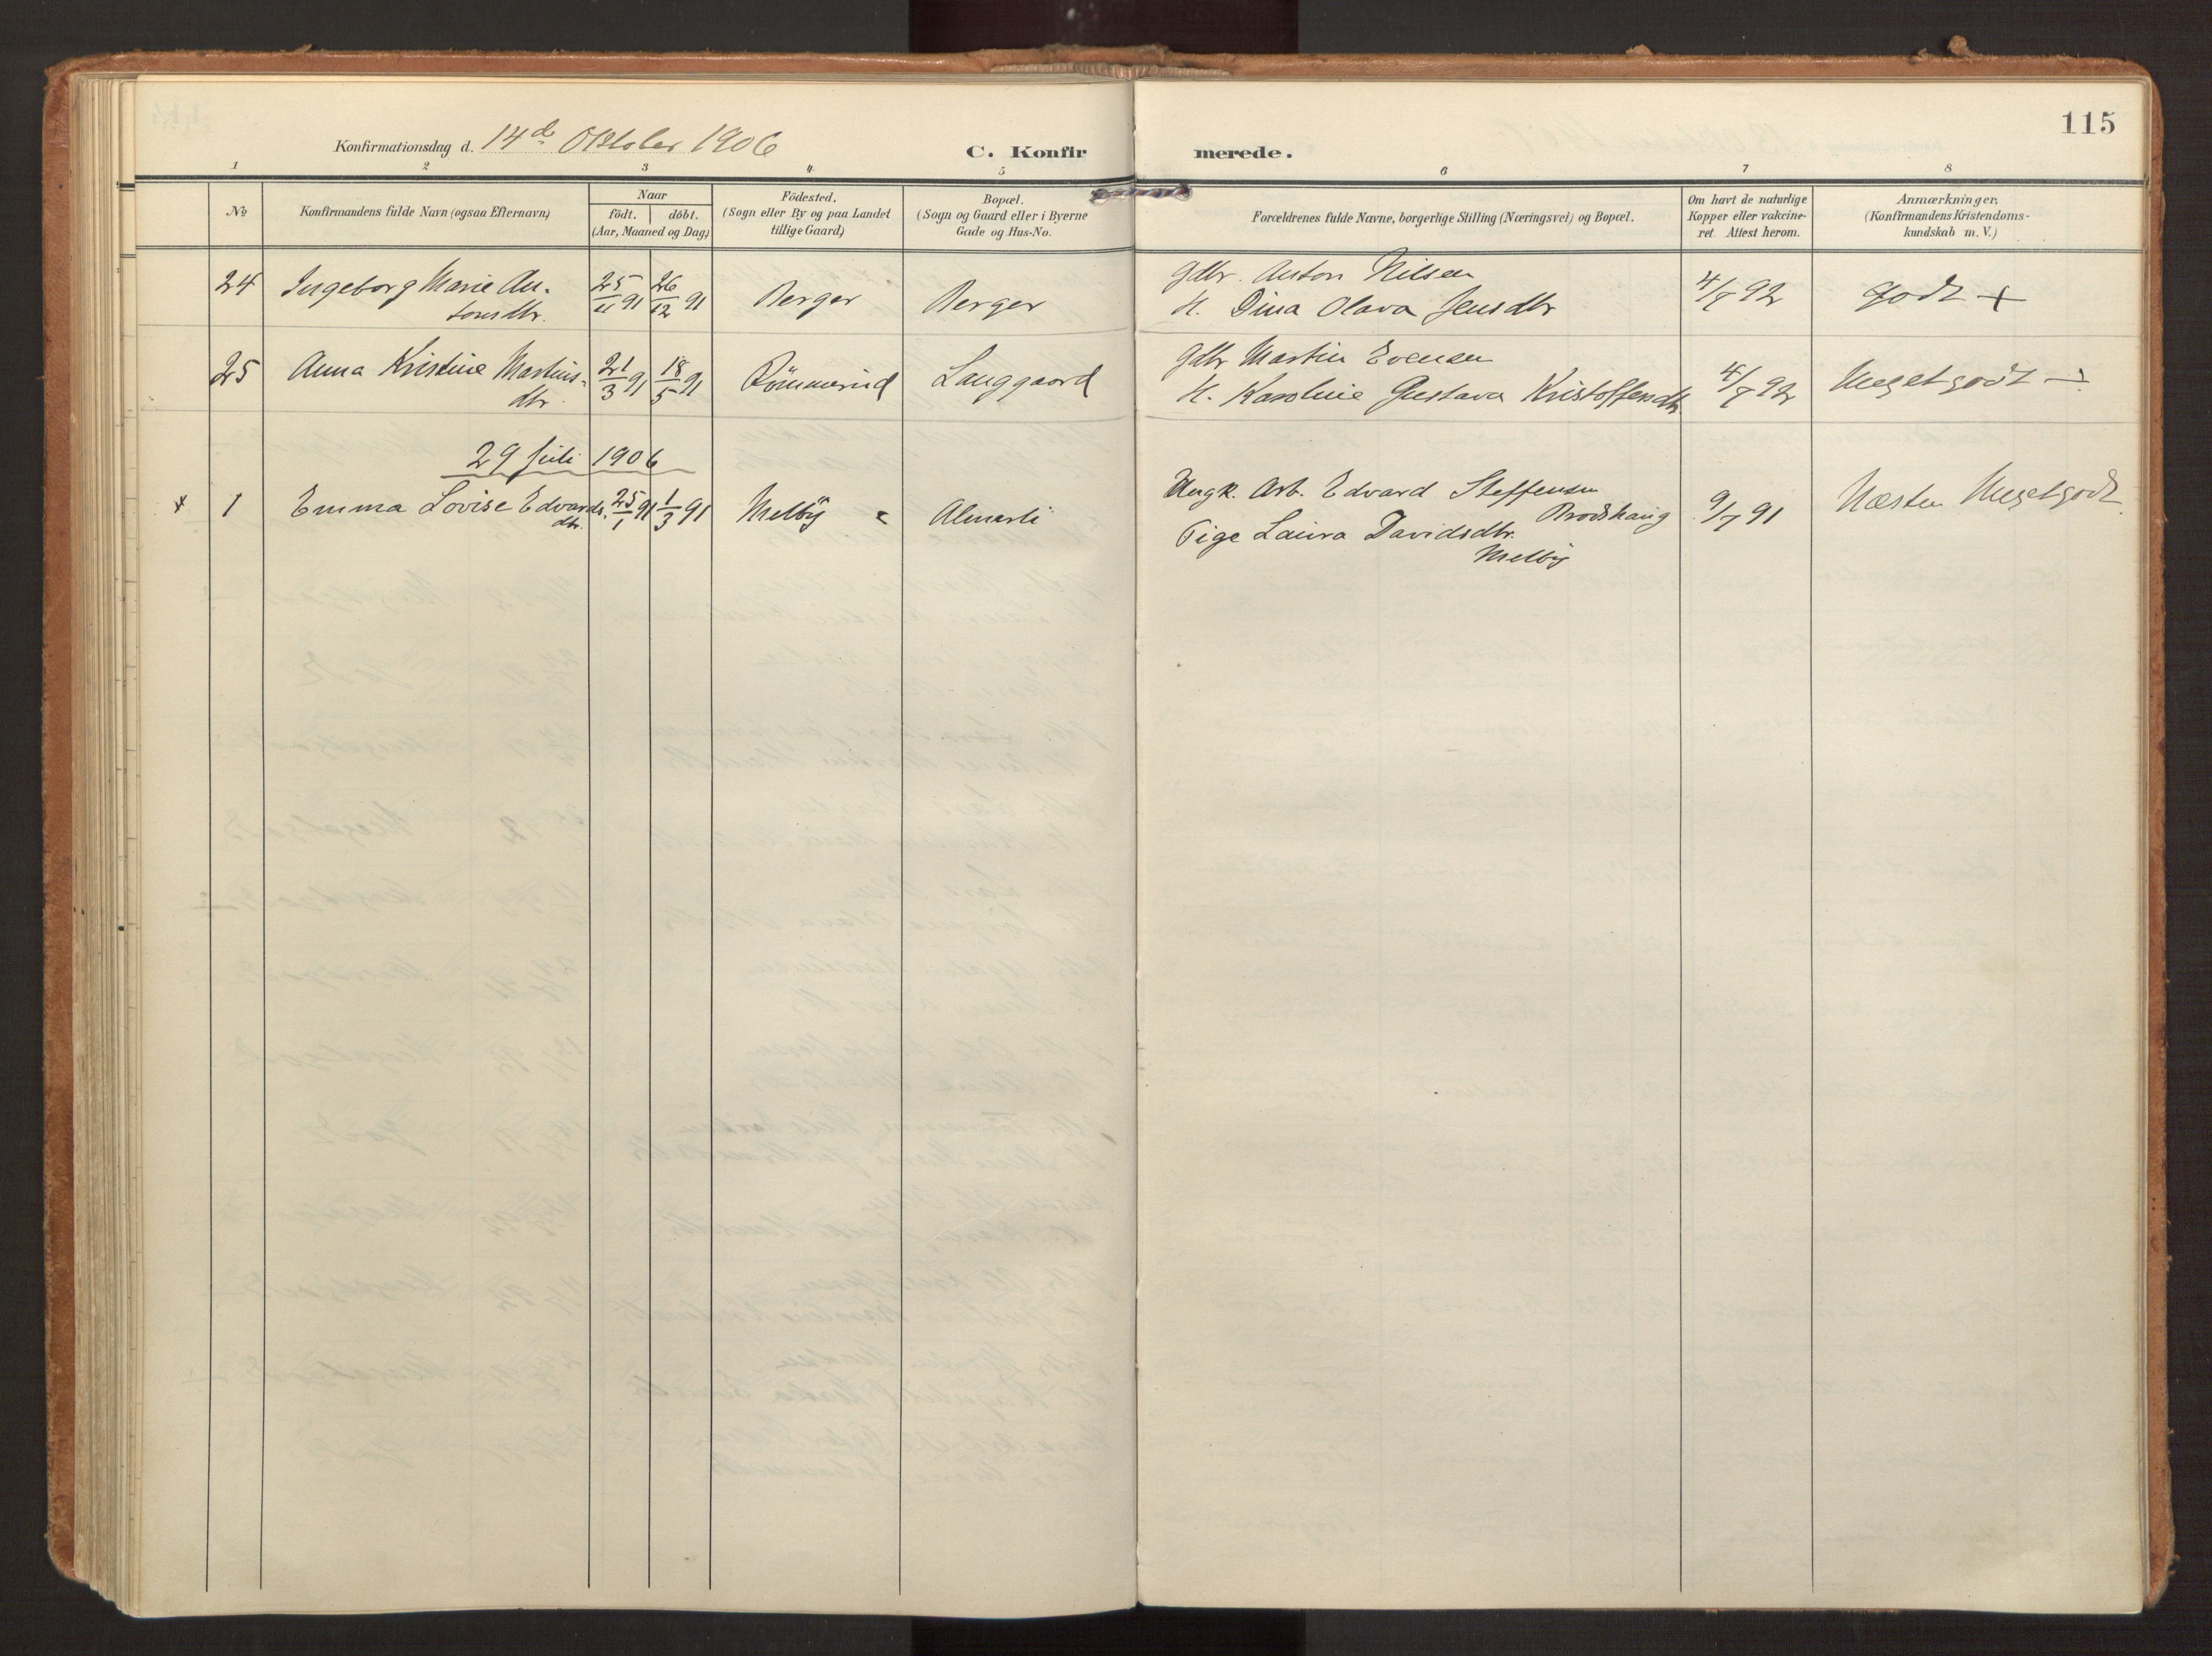 115
Konfirmationsdag d. 14de Oktober 1906
C. Konfirmerede.
1 2 3 4. 5 6 7 8
No
Konfirmandens fulde Navn (ogsaa Efternavn)
Naar
födt. döbt.
(Aar, Maaned og Dag)
Födested.
(Sogn eller By og paa Landet
tillige Gaard)
Bopæl.
(Sogn og Gaard eller i Byerne
Gade og Hus-No.
Forældrenes fulde Navne, borgerlige Stilling (Næringsvei) og Bopæl.
Om havt de naturlige
Kopper eller vakcine-
ret. Attest herom.
Anmærkninger.
(Konfirmandens Kristendoms-
kundskab m. V.)
24 Ingeborg Marie An- 25/11 91 26/12 91 Berger Berger Gdbr. Anton Nilsen 4/7 92 godt +
tonsdtr. H. Dina Olava Jensdtr
25 Anna Kristine Martins- 21/3 91 18/5 91 Römmerud Langgaard Gdbr Martin Evensen 4/7 92 Megetgodt -
dtr. H. Karoline Gustava Kristoffersdtr
29 Juli 1906
x 1 Emma Lovise Edvards. 25/1 91 1/3 91 Melby Almerli Ungk. Arb. Edvard Steffensen 9/7 91 Næsten Megetgodt.
dtr. Brodshaug
Pige Laura Davidsdtr.
Melby